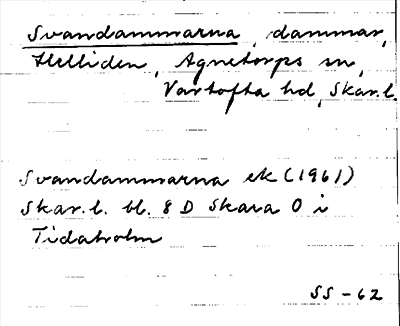 Svandammarna, dammar,
Helliden, Agnetorps sn,
Vartofta hd, Skar.l.
Svandammarna ek (1961)
Skar.l. bl. 8 D Skara O i
Tidaholm
SS-62